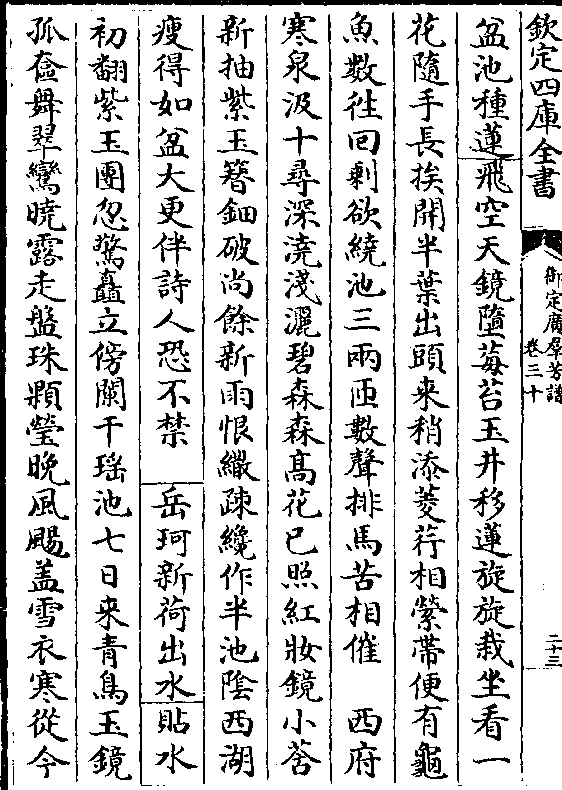 欽定四庫全書
御定廣羣芳譜
卷三十
二十三
盆池種蓮飛空天鏡墮莓苔玉井移蓮旋旋栽坐看一
花隨手長挨開半葉出頭来稍添菱荇相縈帶便有龜
魚數往回剩欲繞池三兩匝數聲排馬苦相催 西府
寒泉汲十尋深澆淺灑碧森森髙花已照紅妝鏡小莟
新抽紫玉簪鈿破尚餘新雨恨繖疎纔作半池陰西湖
瘦得如盆大更伴詩人恐不禁 岳珂新荷出水貼水
初翻紫玉團忽驚矗立傍闌干瑶池七日来青鳥玉鏡
孤奩舞翠鸞曉露走盤珠顆瑩晚風颺盖雪衣寒從今